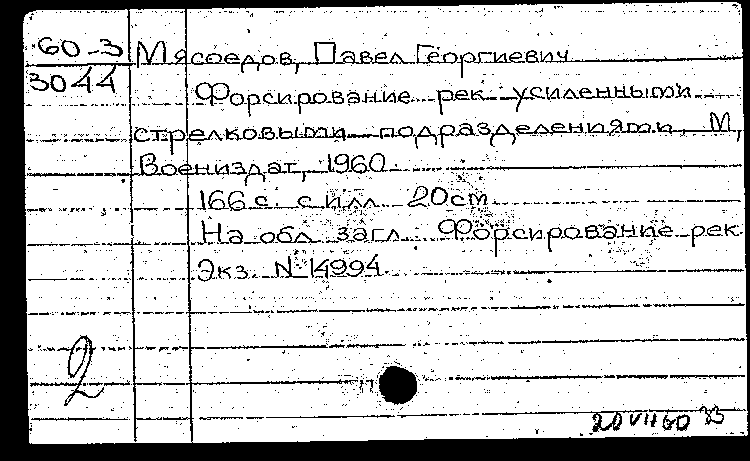 60-3
3044
Мясоедов, Павел Георгиевич
Форсирование рек усиленными
стрелковыми подразделениями. М,
Воениздат, 1960.
166с. с илл. 20см.
На обл. загл.: Форсирование рек
Экз. N 14994
2
20 VII 60